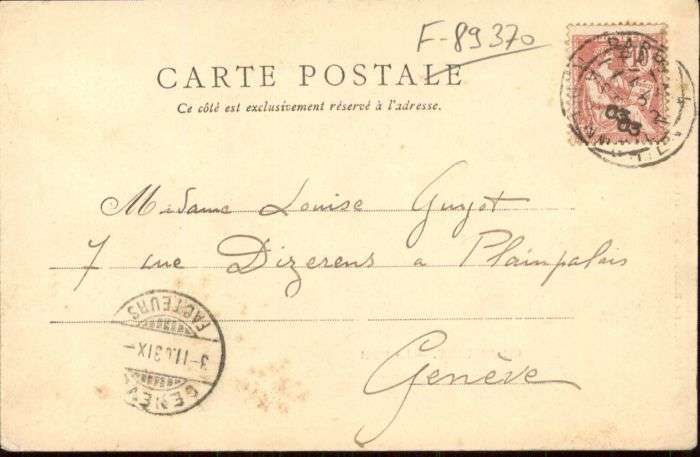 F-89370
CARTE POSTALE
Ce côté est exclusivement réservé à l'adresse.
10
PARIS
03
03
Madame Louise Guyot
7 rue Dizerens à Plainpalais
Genève
FACTEURS
3-II.03 IX-
GENÈV